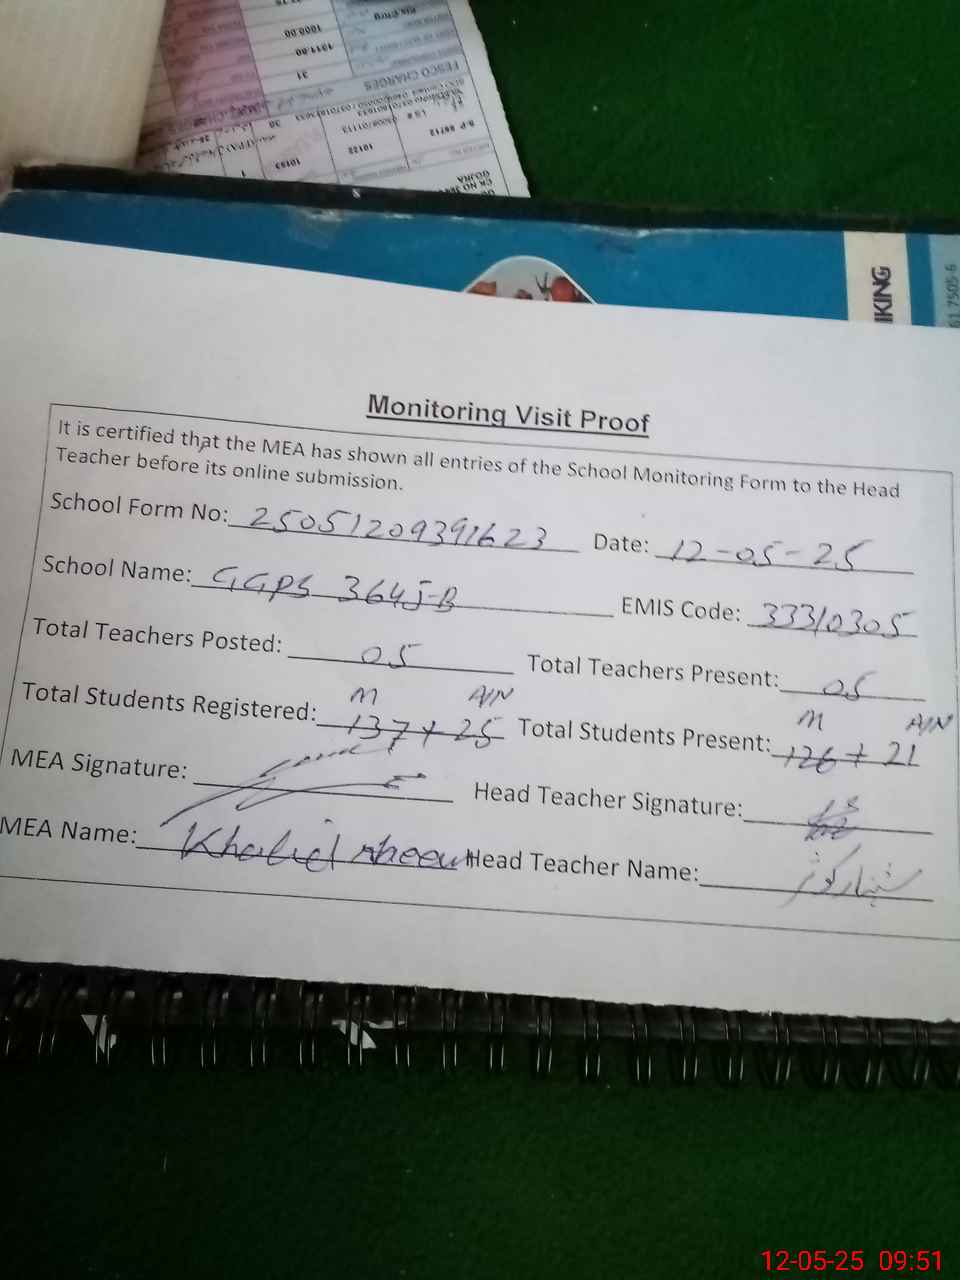 FESCO CHARGES
31
1011.00
1000.00
10122
10153
GOJRA
IKING
61 7505-6
Monitoring Visit Proof
It is certified that the MEA has shown all entries of the School Monitoring Form to the Head
Teacher before its online submission.
School Form No: 25051209391623 Date: 12-05-25
School Name: GGPS 364 J-B EMIS Code: 33310305
Total Teachers Posted: 05 Total Teachers Present: 05
M A/N M A/N
Total Students Registered: 137 + 25 Total Students Present: 126 + 21
MEA Signature: Head Teacher Signature:
MEA Name: Khalid Head Teacher Name:
12-05-25 09:51